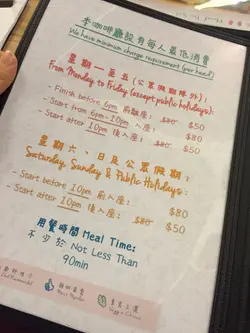 本咖啡廳設有每人最低消費
We have minimum charge requirement (per head)
星期一至五 (公眾假期除外):
From Monday to Friday (except public holidays):
- Finish before 6pm 前離座: $80 $50
- Start from 6pm-10pm 入座: $80
- Start after 10pm 後入座: $80 $50
星期六、日及公眾假期:
Saturday, Sunday & Public Holidays:
- Start before 10pm 前入座: $80
- Start after 10pm 後入座: $80 $50
用餐時間 Meal Time:
不少於 Not Less Than
90min
Most Popular